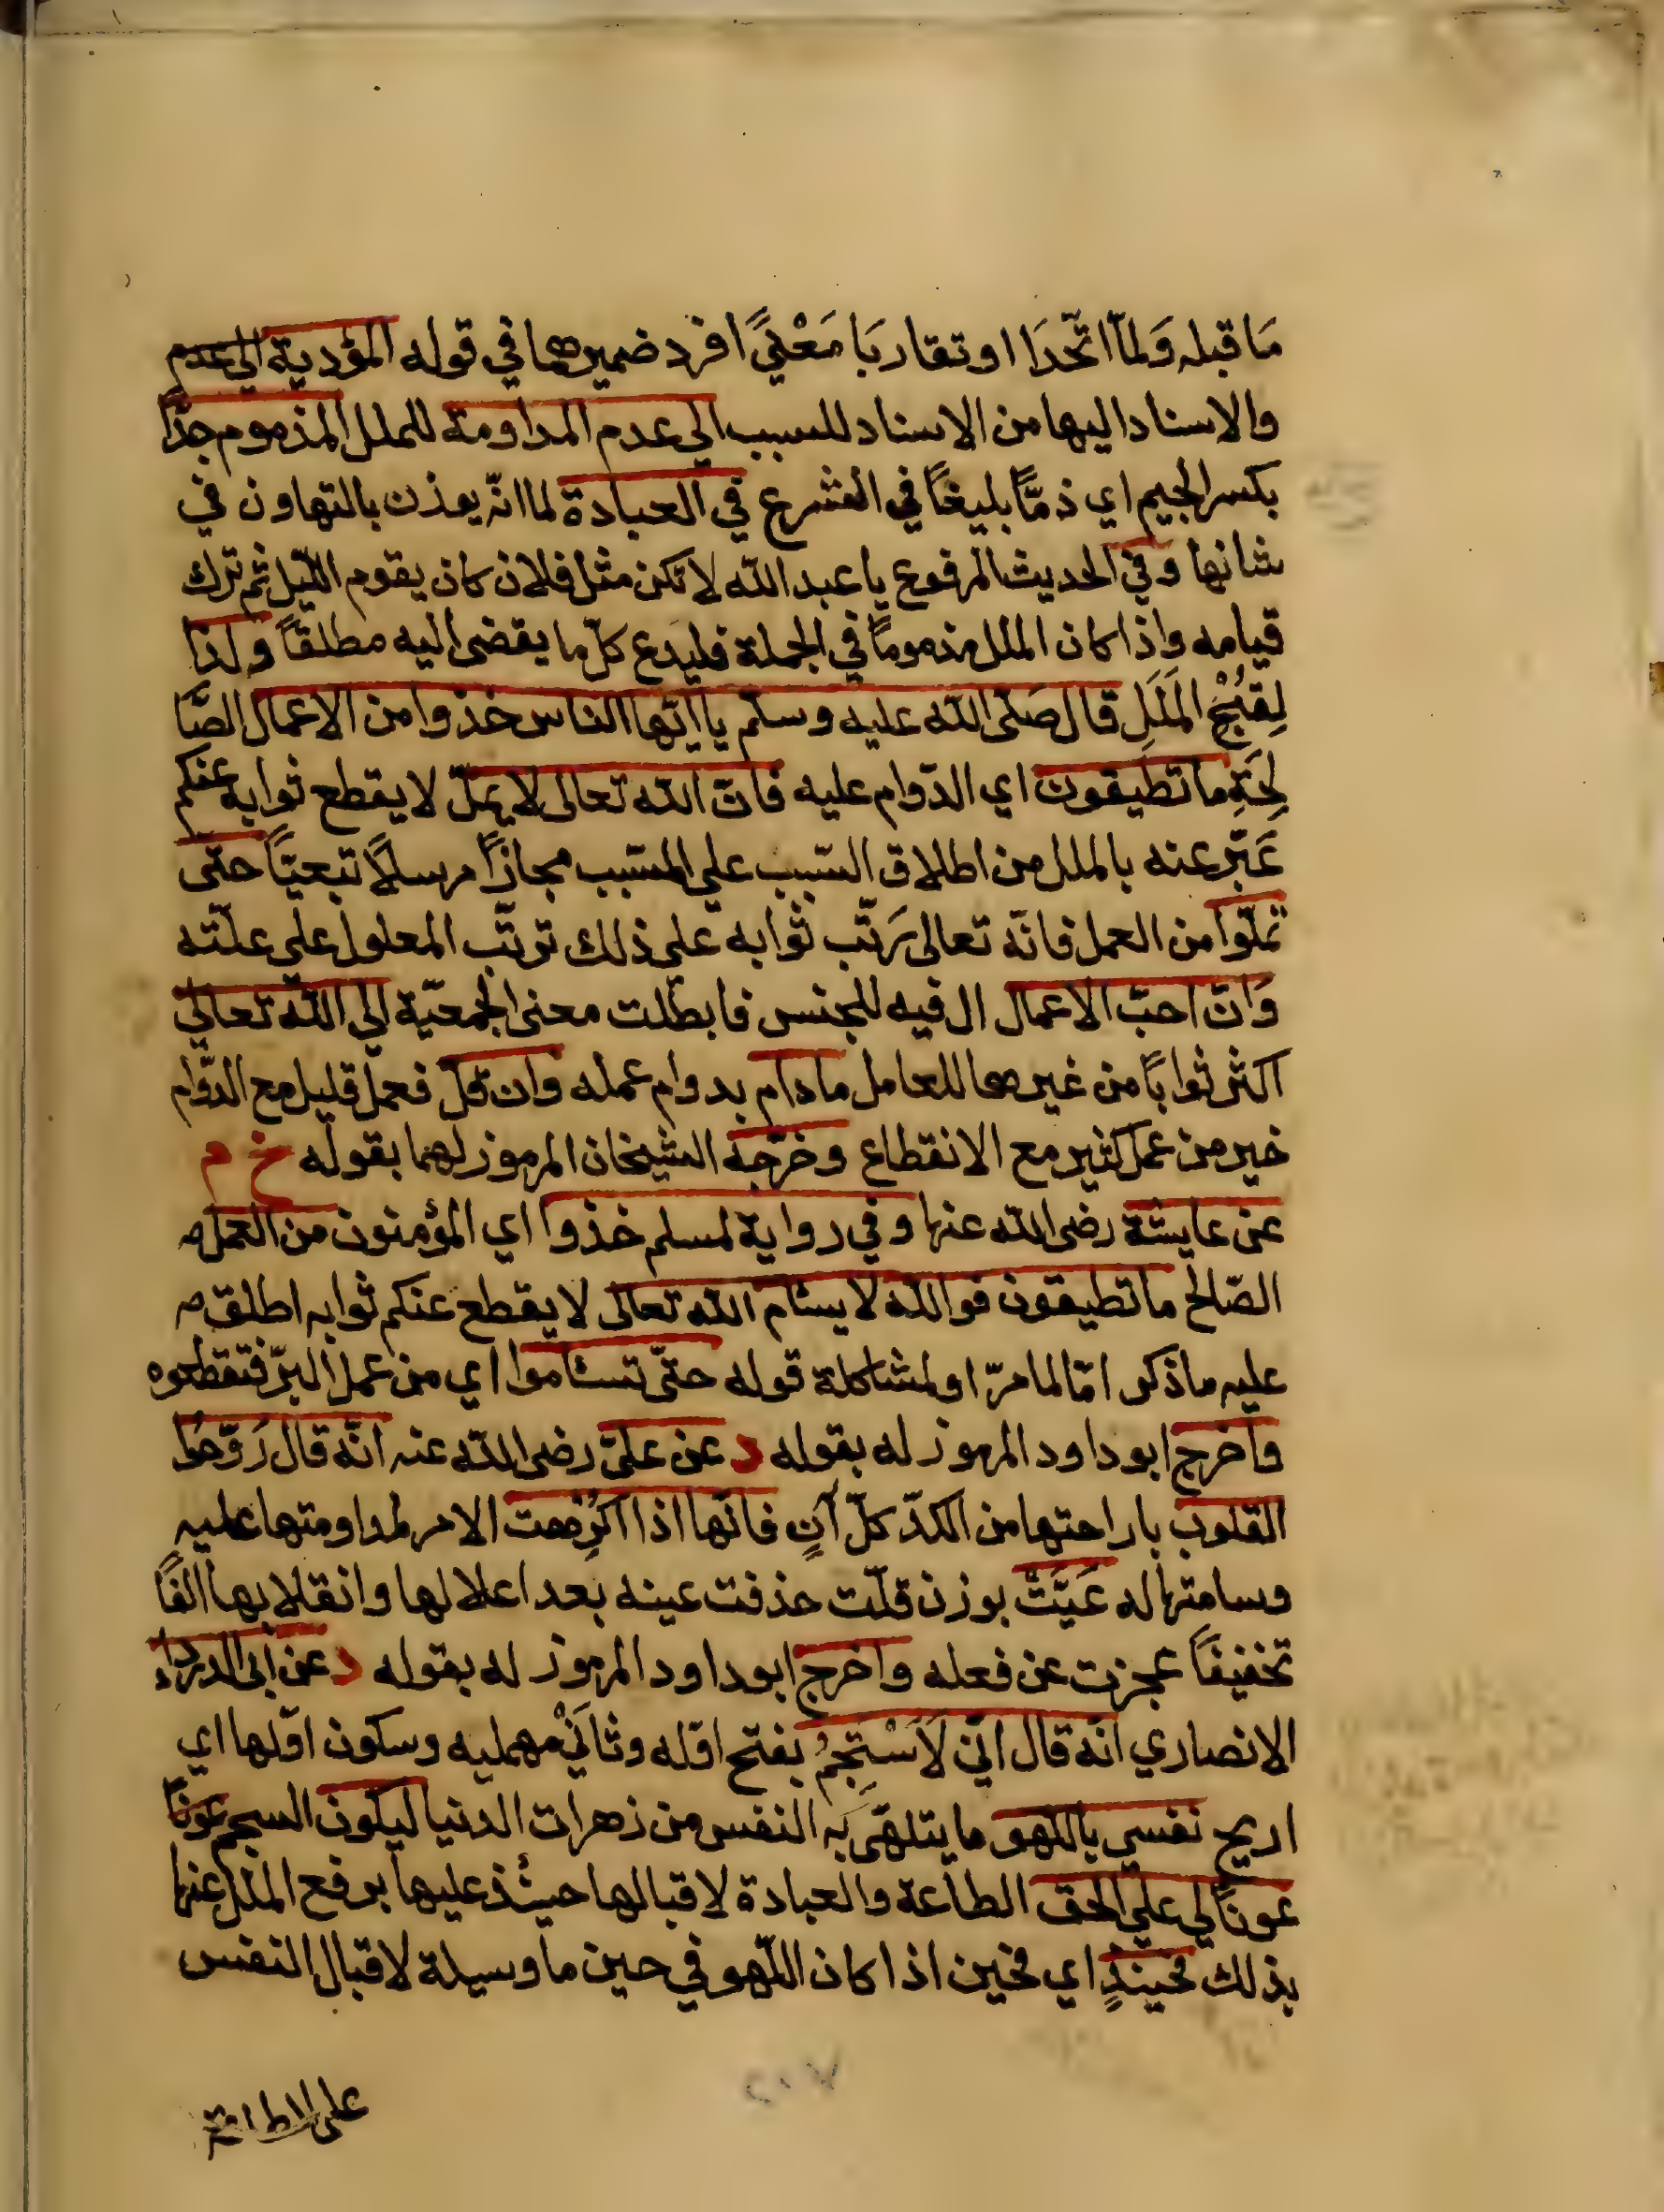 مَا قبله وَلمّا اتّحَدَا او تقاربَا مَعْنيً افرد ضميرهما في قوله المؤدية الي عدم
والاسناد اليها من الاسناد للسبب الي عدم المداومة للملل المذموم جدّاً
بكسر الجيم اي ذمّاً بليغاً في الشرع في العبادة لما انّه يوذن بالتهاون في
شانها وفي الحديث المرفوع يا عبد الله لا تكن مثل فلان كان يقوم اللّيل ثم ترك
قيامه واذا كان الملل مذموماً في الجملة فليدع كلّ ما يفضى اليه مطلقاً ولذا
لِقُبْحِ المَلَلِ قال صَلّى الله عليه وسلّم يا ايّها الناس خذوا من الاعمال الصّا
لِحَةِ ما تطيقون اي الدّوام عليه فانّ الله تعالى لا يملّ لا يقطع ثوابه عنكم
عَبّر عنه بالملل من اطلاق السّبب علي المسّبب مجازاً مرسلاً تبعيّاً حتى
تملّوا من العمل فانّه تعالى رَتّب ثوابه على ذلك ترتّب المعلول على علّته
وَانّ احبّ الاعمال ال فيه للجنس فابطلت معنى الجمعيّة الي الله تعالي
اكثر ثواباً من غيرها للعامل ما دام بدوام عمله وان قلّ فعمل قليل مع الدّوام
خير من عمل كثير مع الانقطاع وخرّجه الشيخان المرموز لهما بقوله خ م
عن عايشة رضى الله عنها وفي رواية لمسلم خذوا اي المؤمنون من العمل
الصّالح ما تطيقون فوالله لا يسئام الله تعالى لا يقطع عنكم ثوابه اطلق
عليه ما ذكر امّا لما مرّ او لمشاكلة قوله حتّى تسئاموا اي من عمل البرّ فتقطعوه
واخرج ابو داود المرموز له بقوله د عن علىّ رضى الله عنه انّه قال رَوّحوا
القلوب باراحتها من الكدّ كلّ آنٍ فانّها اذا اكرِهت الامر لمداومتها عليه
وسامتها له عَيَّتْ بوزن قلّت حذفت عينه بعد اعلالها وانقلابها الفاً
تخفيفاً عجزت عن فعله واخرج ابو داود المرموز له بقوله د عن ابى الدرداء
الانصاري انّه قال انّي لَاَسْتَجِمُّ بفتح اوّله وثانيْ مهمليه وسكون اوّلها اي
اريح نفسي باللهو ما يتلهّى به النفس من زهرات الدنيا ليكون السجم عونًا
عونًا لي علي الحق الطاعة والعبادة لاقبالها حيئذ عليها برفع الملل عنها
بذلك فحينئذٍ اي فحين اذا كان اللّهو في حين ما وسيلة لاقبال النفس
على الاطاعة